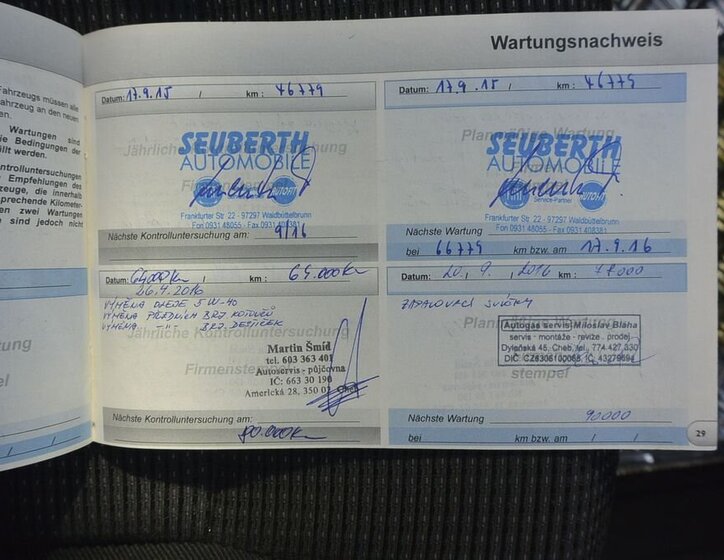 Fahrzeugs müssen alle
ahrzeug an den neuen
Wartungen sind
ie Bedingungen der
llt werden.
ontrolluntersuchungen
Empfehlungen des
zeuge, die innerhalb
sprechende Kilometer-
en zwei Wartungen
e sind jedoch nicht
Wartungsnachweis
Datum: 17.9.15 / km: 46779
Jährliche
SEUBERTH
AUTOMOBILE
Frankfurter Str. 22 - 97297 Waldbüttelbrunn
Fon 0931 48055 - Fax 0931 408381
Nächste Kontrolluntersuchung am: 9/16
Datum: 17.9.15 / km: 46779
Planmäßige Wartung
SEUBERTH
AUTOMOBILE
Service-Partner
Frankfurter Str. 22 - 97297 Waldbüttelbrunn
Fon 0931 48055 - Fax 0931 408381
Nächste Wartung
bei 66779 km bzw. am 17.9.16
Datum: 64000km / km: 64.000km
26.4.2016
VÝMĚNA OLEJE 5W-40
VÝMĚNA PŘEDNÍCH BRZ. KOTOUČŮ
VÝMĚNA -"- BRZ. DESTIČEK
Jährliche Kontrolluntersuchung
Firmenstempel
Martin Šmíd
tel. 603 363 401
Autoservis - půjčovna
IČ: 663 30 190
Americká 28, 350 02 Cheb
Nächste Kontrolluntersuchung am:
80.000km
Datum: 20.9.2016 km: 77000
ZAPALOVACÍ SVÍČKY
Autogas servis Miloslav Blaha
servis - montáže - revize - prodej
Dyleňská 45, Cheb, tel. 774 427 330
stempel
Nächste Wartung 90000
bei km bzw. am / /
29